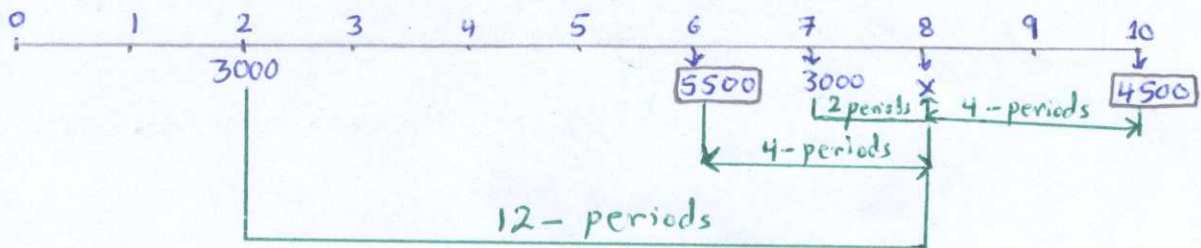 0 1 2 3 4 5 6 7 8 9 10
3000 5500 3000 X 4500
2 periods 4-periods
4-periods
12- periods